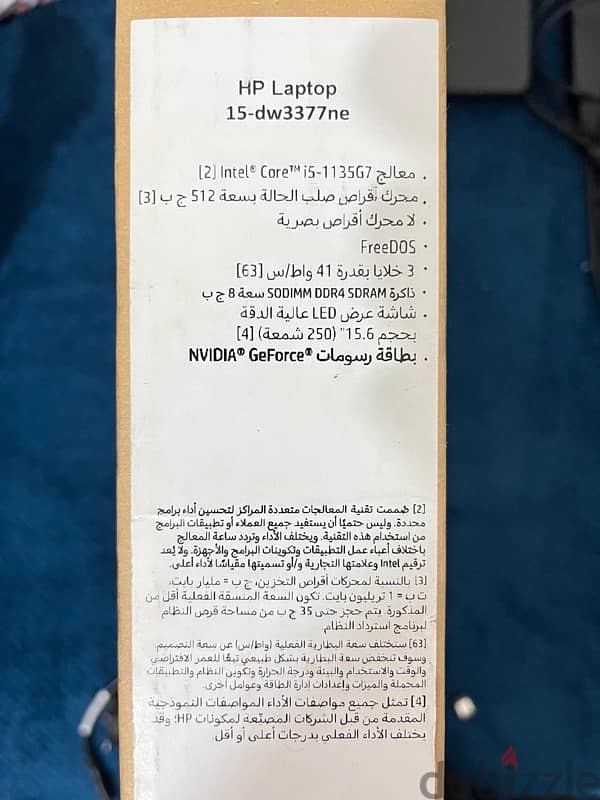 HP Laptop
15-dw3377ne
. معالج Intel® Core™ i5-1135G7 [2]
. محرك أقراص صلب الحالة بسعة 512 ج ب [3]
. لا محرك أقراص بصرية
. FreeDOS
. 3 خلايا بقدرة 41 واط/س [63]
. ذاكرة SODIMM DDR4 SDRAM سعة 8 ج ب
. شاشة عرض LED عالية الدقة
بحجم 15.6" (250 شمعة) [4]
. بطاقة رسومات NVIDIA® GeForce®
[2] صُممت تقنية المعالجات متعددة المراكز لتحسين أداء برامج
محددة. وليس حتميًا أن يستفيد جميع العملاء أو تطبيقات البرامج
من استخدام هذه التقنية. ويختلف الأداء وتردد ساعة المعالج
باختلاف أعباء عمل التطبيقات وتكوينات البرامج والأجهزة. ولا يُعد
ترقيم Intel وعلامتها التجارية و/أو تسميتها مقياسًا لأداء أعلى.
[3] بالنسبة لمحركات أقراص التخزين، ج ب = مليار بايت.
ت ب = 1 تريليون بايت. تكون السعة المنسقة الفعلية أقل من
المذكورة. يتم حجز حتى 35 ج ب من مساحة قرص النظام
لبرنامج استرداد النظام.
[63] ستختلف سعة البطارية الفعلية (واط/س) عن سعة التصميم.
وسوف تنخفض سعة البطارية بشكل طبيعي تبعًا للعمر الافتراضي
والوقت والاستخدام والبيئة ودرجة الحرارة وتكوين النظام والتطبيقات
المحملة والميزات وإعدادات إدارة الطاقة وعوامل أخرى.
[4] تمثل جميع مواصفات الأداء المواصفات النموذجية
المقدمة من قبل الشركات المصنّعة لمكونات HP؛ وقد
يختلف الأداء الفعلي بدرجات أعلى أو أقل.
dubizzle